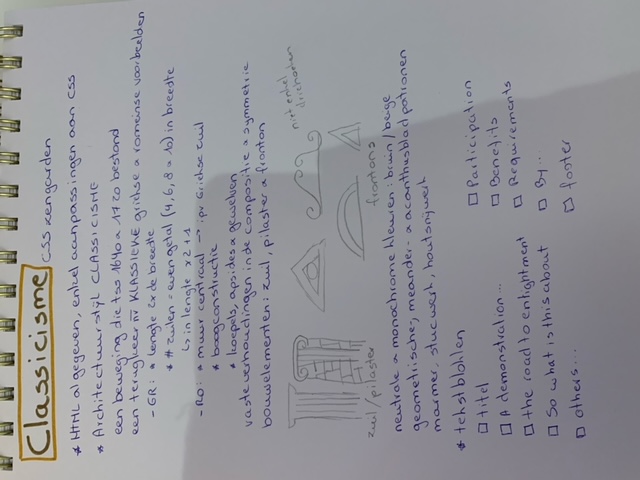 Classicisme CSS zengarden
* HTML al gegeven, enkel aanpassingen aan CSS
* Architectuurstijl CLASSICISME
een beweging die tss 1640 & 1720 bestond
een terugkeer nr KLASSIEKE griekse & romeinse voorbeelden
- GR: * lengte 2x de breedte
* # zuilen = even getal (4, 6, 8 & 10) in breedte
↳ in lengte x2 + 1
- RO: * muur centraal → ipv Griekse zuil
* boogconstructie
* koepels, apsides & gewelven
vaste verhoudingen in de compositie & symmetrie
bouwelementen: zuil, pilaster & fronton
niet enkel
driehoeken
zuil/pilaster
frontons
neutrale & monochrome kleuren: bruin/beige
geometrische, meander- & acanthusblad patronen
marmer, stucwerk, houtsnijwerk
* tekstblokken
☐ titel
☐ A demonstration...
☐ the road to enlightment
☐ So what is this about
☐ others...
☐ Participation
☐ Benefits
☐ Requirements
☐ By...
☐ footer